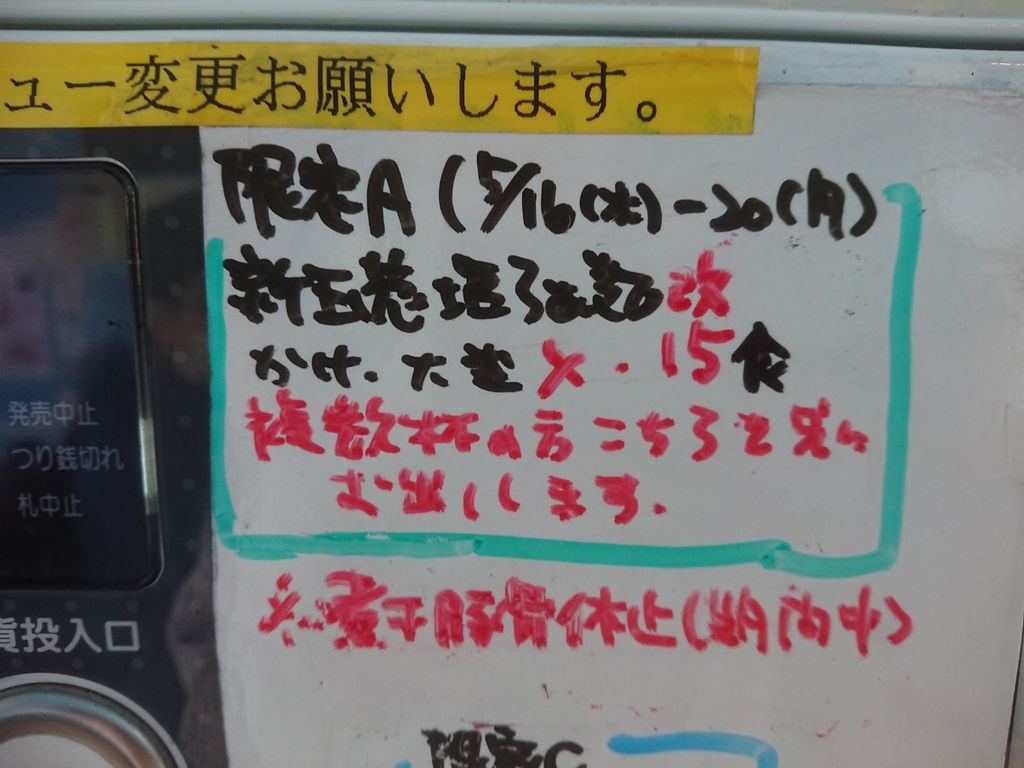 ュー変更お願いします。
限定A(5/16(木)-20(月)
改
かけ、大盛×・15食
複数杯の方こちらを先に
お出しします.
※煮干豚骨休止(期間中)
発売中止
つり銭切れ
札中止
貨投入口
限定C